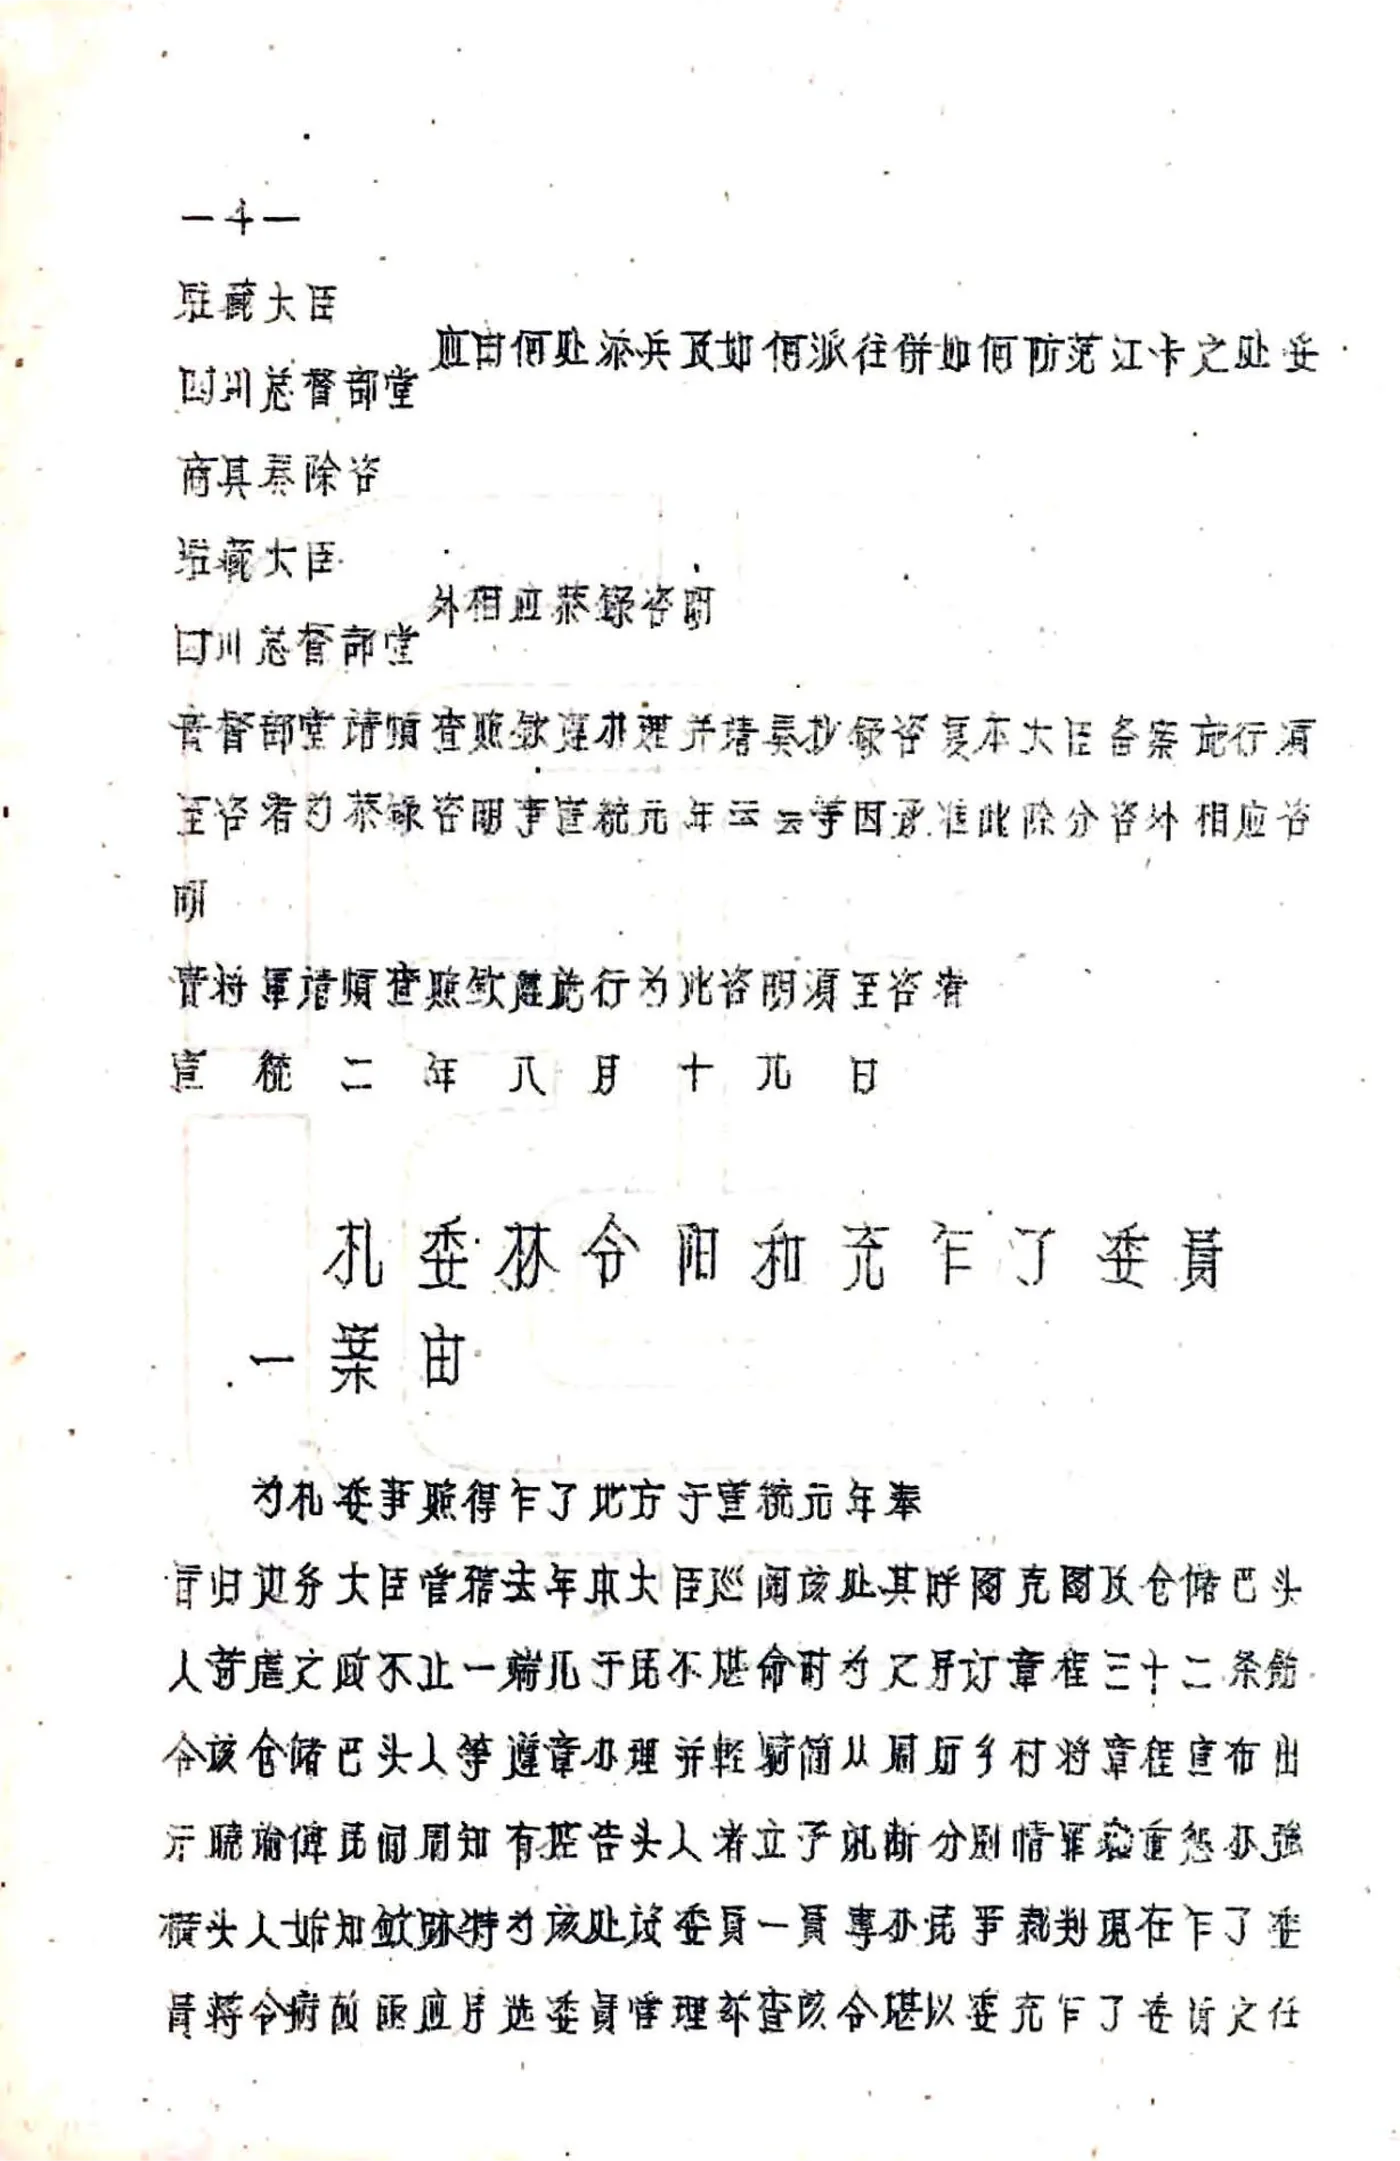 —4—
驻藏大臣
应由何处添兵及如何派往併如何防范江卡之处妥
四川总督部堂
商具奏除咨
驻藏大臣
外相应恭録咨明
四川总督部堂
贵督部堂请烦查照钦遵办理并请奏抄録咨复本大臣备案施行须
至咨者为恭録咨明事宣统元年云云等因承准此除分咨外相应咨
明
贵将軍请烦查照钦遵施行为此咨明须至咨者
宣统二年八月十九日
札委林令阳和充乍了委員
一案由
为札委事照得乍了地方于宣统元年奉
旨归边务大臣管辖去年本大臣巡阅该处其呼图克图及仓储巴头
人苛虐之政不止一端几于民不堪命时为之厘订章程三十二条饬
令该仓储巴头人等遵章办理并軽骑简从周历乡村将章程宣布出
示晓谕俾民间周知有控告头人者立予讯断分别情罪轻重惩办强
横头人始知敛跡特为该处设委員一員專办民事裁判现在乍了委
員蒋令病故亟应另选委員管理兹查该令堪以委充乍了委員之任